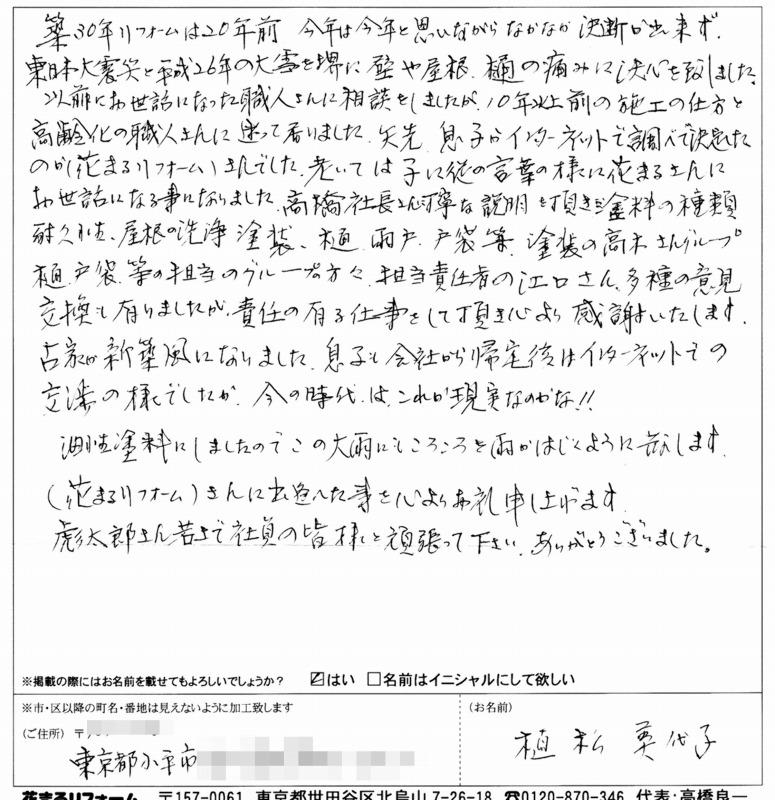 築30年リフォームは20年前 今年は今年と思いながらなかなか決断が出来ず、
東日本大震災と平成26年の大雪を堺に壁や屋根、樋の痛みに決心を致しました。
以前にお世話になった職人さんに相談をしましたが、10年以上前の施工の仕方と
高齢化の職人さんに迷って居りました。矢先、息子がインターネットで調べて決定した
のが(花まるリフォーム)さんでした。老いては子に従の言葉の様に花まるさんに
お世話になる事になりました。高橋社長さん丁寧な説明を頂き塗料の種類
耐久性、屋根の洗浄 塗装、樋、雨戸、戸袋等、塗装の高木さんグループ
樋、戸袋、等の担当のグループの方々、担当責任者の江口さん、多種の意見
交換も有りましたが、責任の有る仕事をして頂き心より感謝いたします。
古家が新築風になりました。息子も会社から帰宅後はインターネットでの
交渉の様でしたが、今の時代は、これが現実なのかな!!
油性塗料にしましたのでこの大雨にもころころと雨がはじくように感じます。
(花まるリフォーム)さんに出逢へた事を心よりお礼申し上げます。
彪太郎さん若さで社員の皆様と頑張って下さい。ありがとうございました。
※掲載の際にはお名前を載せてもよろしいでしょうか? ☑はい □名前はイニシャルにして欲しい
※市・区以降の町名・番地は見えないように加工致します
(ご住所) 〒
東京都小平市
(お名前)
植松 英代子
花まるリフォーム 〒157-0061 東京都世田谷区北烏山7-26-18 ☎0120-870-346 代表:高橋良一